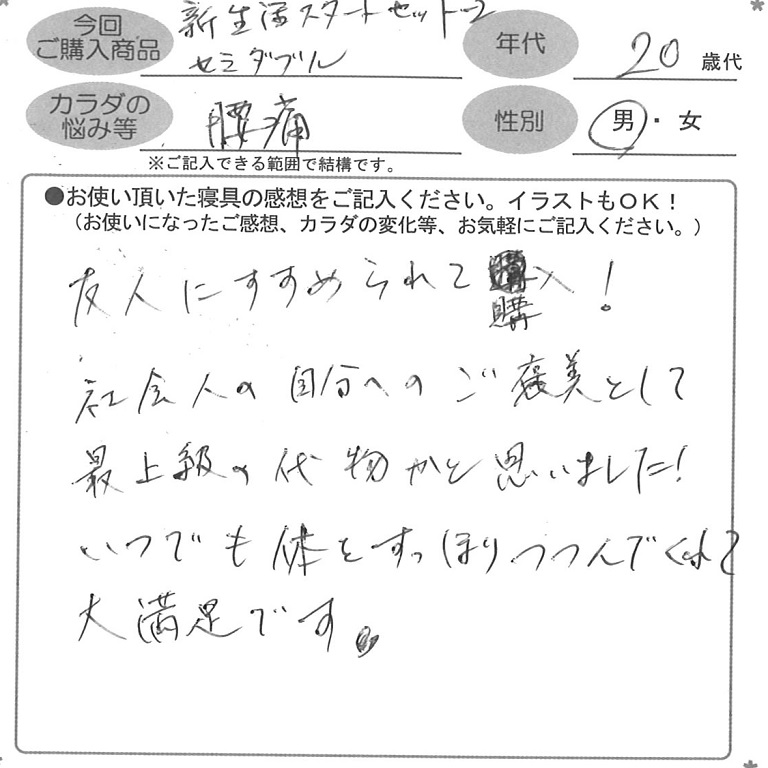 今回
ご購入商品
新生活スタートセット-2
セミダブル
年代
20 歳代
カラダの
悩み等
腰痛
性別
男・女
※ご記入できる範囲で結構です。
●お使い頂いた寝具の感想をご記入ください。イラストもOK!
(お使いになったご感想、カラダの変化等、お気軽にご記入ください。)
友人にすすめられて購入!
購
社会人の自分へのご褒美として
最上級の代物かと思いました!
いつでも体をすっぽりつつんでくれて
大満足です。